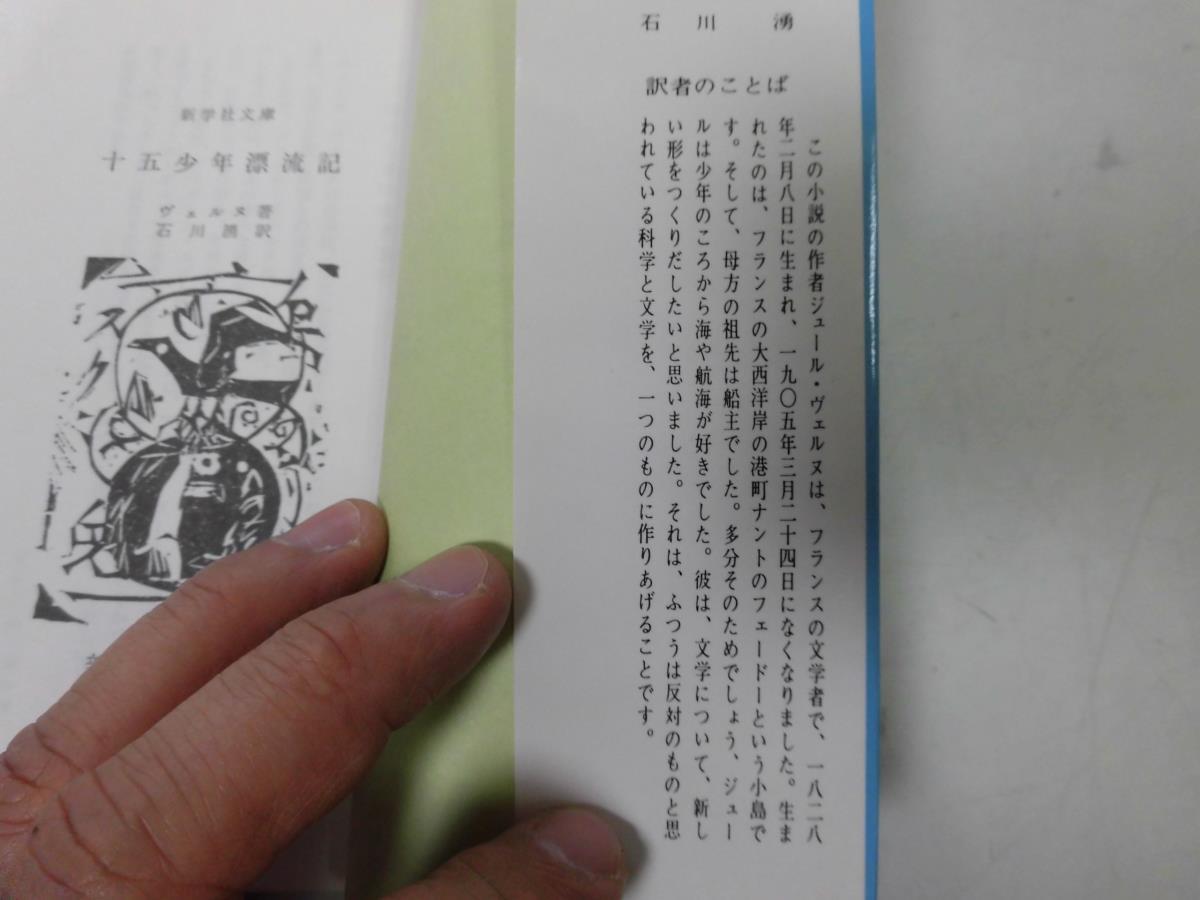 石川湧
訳者のことば
この小説の作者ジュール・ヴェルヌは、フランスの文学者で、一八二八
年二月八日に生まれ、一九〇五年三月二十四日になくなりました。生ま
れたのは、フランスの大西洋岸の港町ナントのフェードーという小島で
す。そして、母方の祖先は船主でした。多分そのためでしょう、ジュー
ルは少年のころから海や航海が好きでした。彼は、文学について、新し
い形をつくりだしたいと思いました。それは、ふつうは反対のものと思
われている科学と文学を、一つのものに作りあげることです。
新学社文庫
十五少年漂流記
ヴェルヌ著
石川湧訳